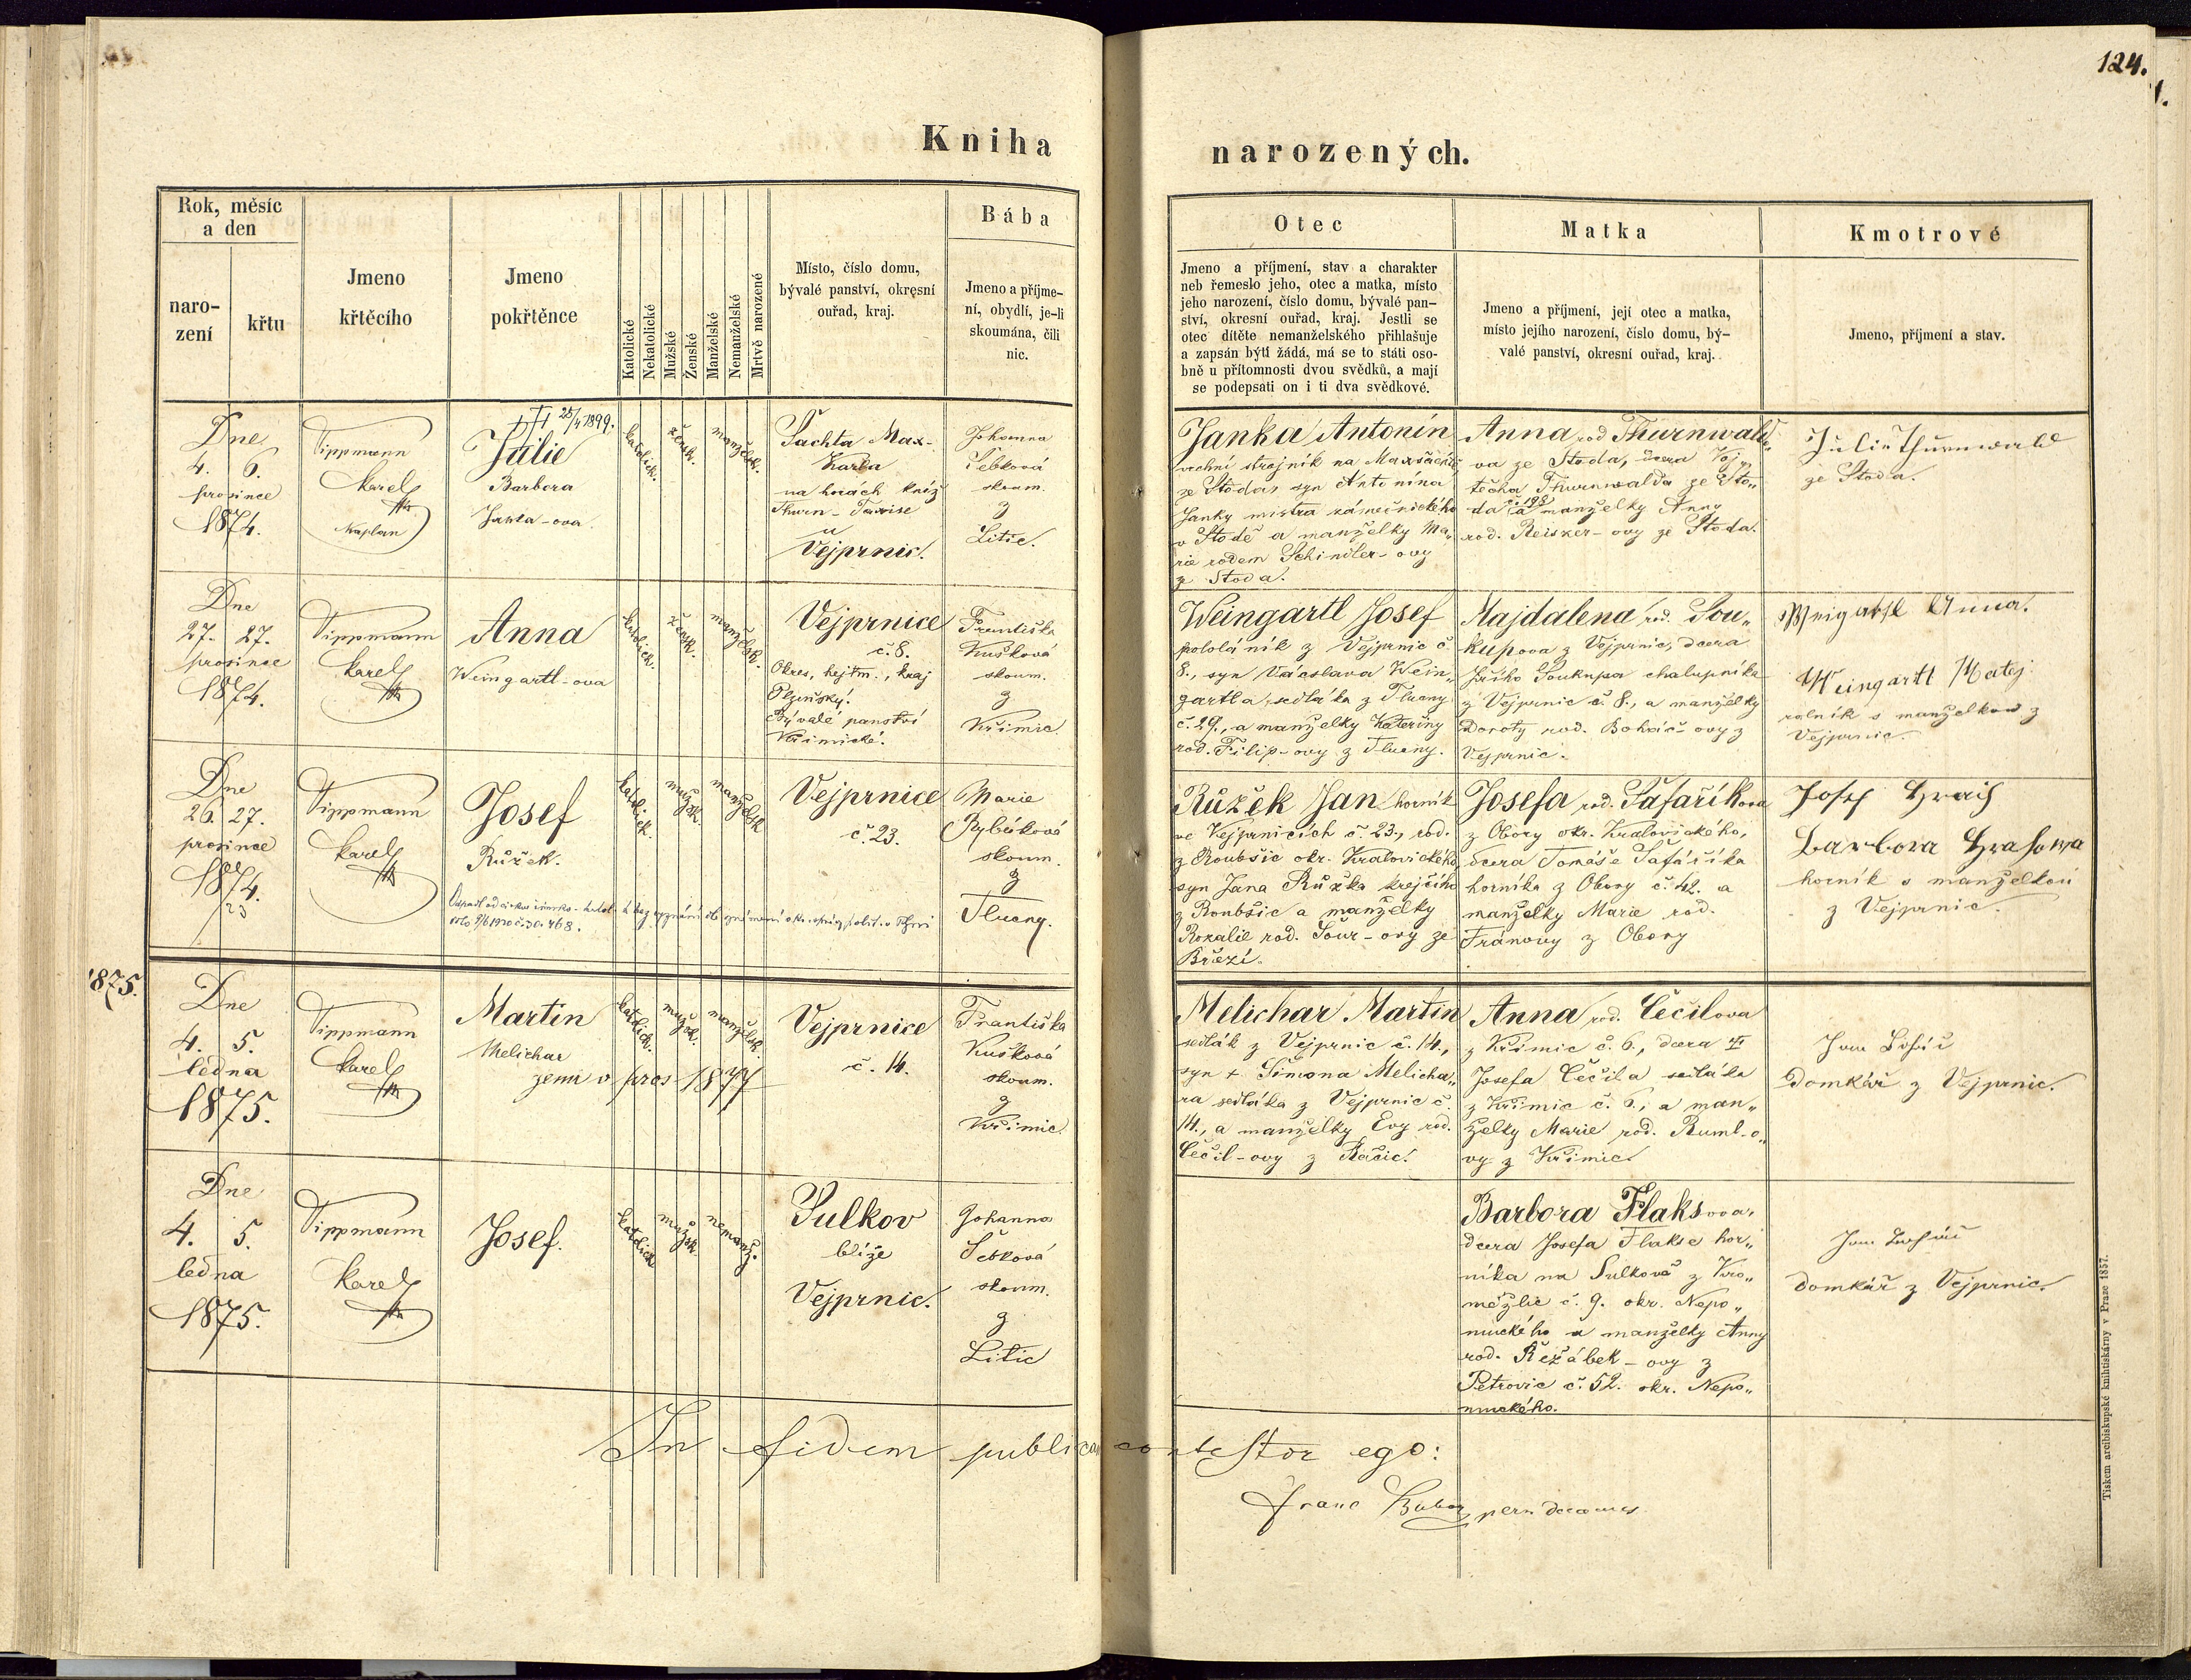 124.
Kniha narozených.
Rok, měsíc
a den
naro-
zení
křtu
Jmeno
křtěcího
Jmeno
pokřtěnce
Katolické
Nekatolické
Mužské
Ženské
Manželské
Nemanželské
Mrtvě narozené
Místo, číslo domu,
bývalé panství, okresní
ouřad, kraj.
Bába
Jmeno a příjme-
ní, obydlí, je-li
skoumána, čili
nic.
Otec
Jmeno a příjmení, stav a charakter
neb řemeslo jeho, otec a matka, místo
jeho narození, číslo domu, bývalé pan-
ství, okresní ouřad, kraj. Jestli se
otec dítěte nemanželského přihlašuje
a zapsán býti žádá, má se to státi oso-
bně u přítomnosti dvou svědků, a mají
se podepsati on i ti dva svědkové.
Matka
Jmeno a příjmení, její otec a matka,
místo jejího narození, číslo domu, bý-
valé panství, okresní ouřad, kraj.
Kmotrové
Jmeno, příjmení a stav.
Dne
4. 6.
prosince
1874.
Tippmann
Karel
Kaplan
25/4 1899.
Julie
Barbora
Janka-ova
katolick.
žensk.
manželsk.
Šachta Max-
Karla
na horách kníž
Thurn-Taxise
u
Vejprnic.
Johanna
Šebková
skoum.
z
Litic.
Janka Antonín
vrchní strojník na Maxšachtě
ze Stoda, syn Antonína
Janky mistra zámečnického
v Stodě a manželky Ma„
rie rodem Schindler-ovy
z Stoda.
Anna rod Thurnwald„
va ze Stoda, dcera Voj„
těcha Thurnwalda ze Sto„
da č. 198 a manželky Anny
rod. Reisker-ovy ze Stoda.
Julie Thurnwald
ze Stoda.
Dne
27. 27.
prosince
1874.
Tippmann
Karel
Anna
Weingartl-ova
katolick.
žensk.
manželsk.
Vejprnice
č. 8.
Okres, hejtm., kraj
Plzeňský.
Bývalé panství
Křimické.
Františka
Kušková
skoum.
z
Křimic.
Weingartl Josef
pololáník z Vejprnic č.
8., syn Václava Wein„
gartla, sedláka z Tlucny
č. 29., a manželky Kateřiny
rod. Filip-ovy z Tlucny.
Majdalena rod. Sou„
kupova z Vejprnic, dcera
Jiřího Soukupa chalupníka
z Vejprnic č. 8., a manželky
Doroty rod. Boháč-ovy z
Vejprnic.
Weigartl Anna.
Weingartl Matej
rolník s manželkou z
Vejprnic.
Dne
26. 27.
prosince
1874.
23
Tippmann
Karel
Josef
Růžek.
katolick.
mužsk.
manželsk
Vejprnice
č. 23.
Marie
Rybáková
skoum.
z
Tlucny.
Růžek Jan horník
ve Vejprnicích č. 23., rod.
z Roubšic okr. Kralovického
syn Jana Růžka krejčího
z Roubšic a manželky
Rozalie rod. Sour-ovy ze
Březí.
Josefa rod. Šafaříkova
z Obory okr. Kralovického,
dcera Tomáše Šafaříka
horníka z Obory č. 42. a
manželky Marie rod.
Fránovy z Obory
Josef
Barbora Hrahowa
horník s manželkou
z Vejprnic.
1875.
Dne
4. 5.
ledna
1875.
Tippmann
Karel
Martin
Melichar
zemř v pros 1877
katolick.
mužsk.
manželsk.
Vejprnice
č. 14.
Františka
Kušková
skoum.
z
Křimic.
Melichar Martin
sedlák z Vejprnic č. 14.,
syn + Šimona Melicha„
ra sedláka z Vejprnic č.
14., a manželky Evy rod.
Čečil-ovy z Račic.
Anna rod. Čečilova
z Křimic č. 6., dcera
Josefa Čečila sedláka
z Křimic č. 6., a man„
želky Marie rod. Ruml-o„
vy z Křimic.
Jan
domkář z Vejprnic.
Dne
4. 5.
ledna
1875.
Tippmann
Karel
Josef.
katolick
mužsk.
nemanž.
Sulkov
blíže
Vejprnic.
Johanna
Šebková
skoum.
z
Litic
Barbora Flaksova,
dcera Josefa Flakse hor„
níka na Sulkově z Kro„
měžlic č. 9. okr. Nepo„
muckého a manželky Anny
rod. Řežábek-ovy z
Petrovic č. 52. okr. Nepo„
muckého.
Jan
domkář z Vejprnic.
In fidem publicam contestor ego:
Tiskem arcibiskupské knihtiskárny v Praze 1857.